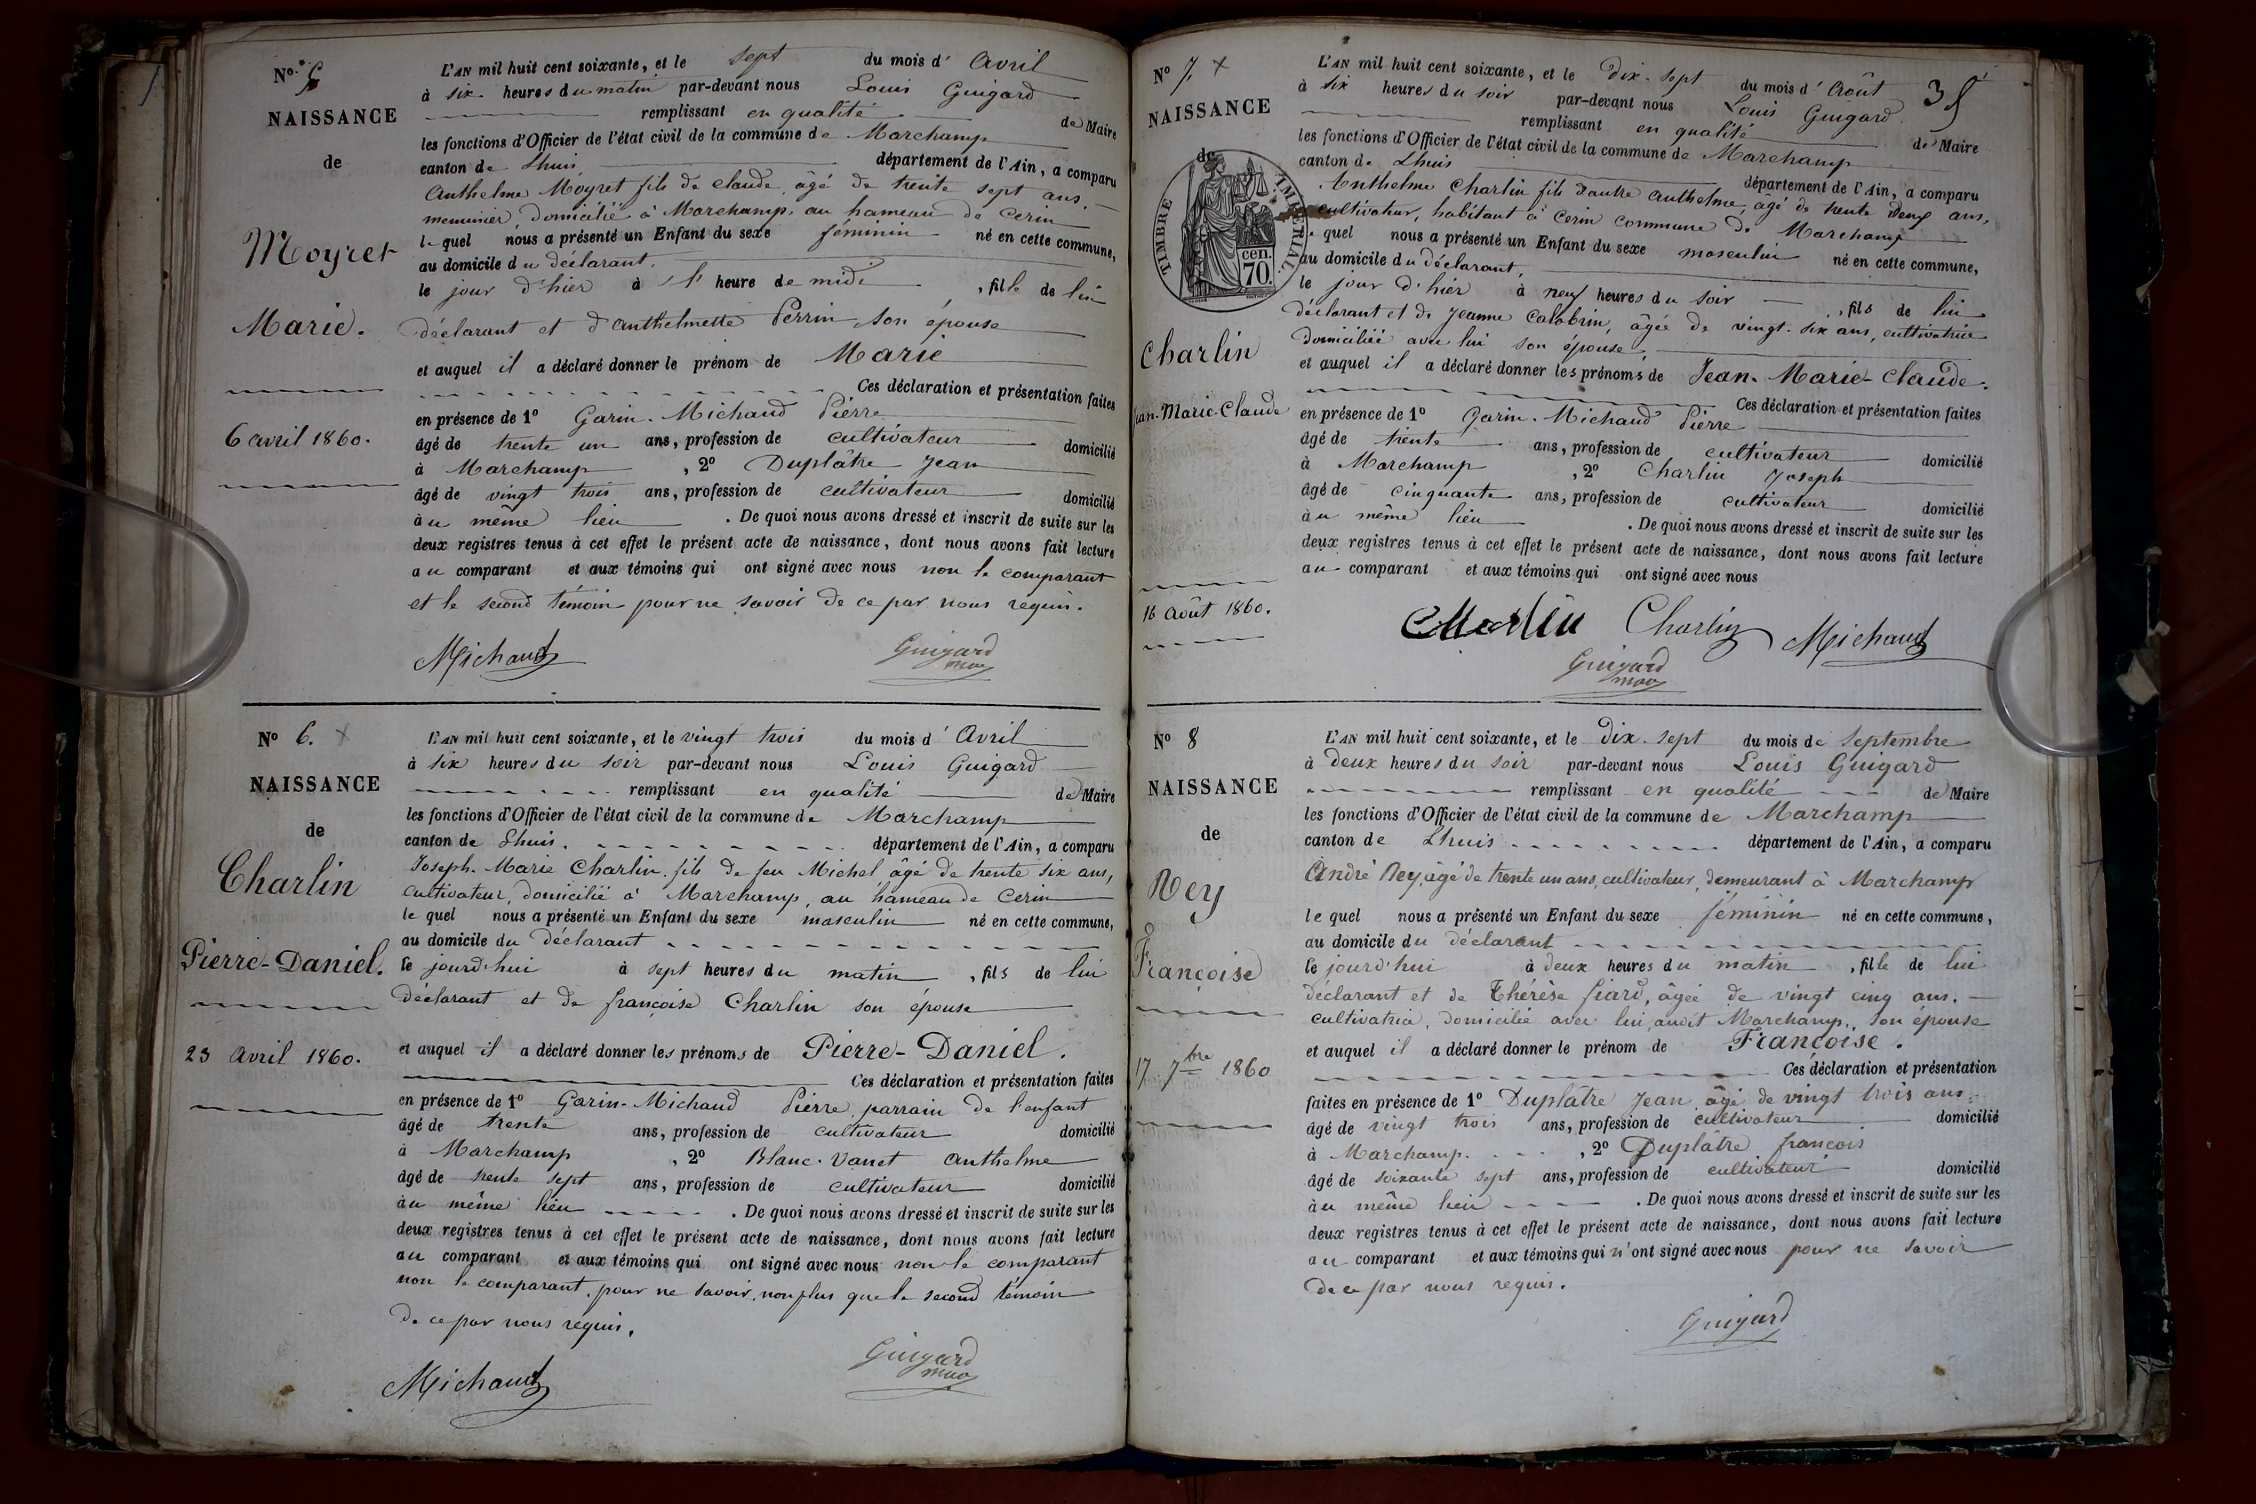 N° 5
NAISSANCE
de
Moyret
Marie.
6 avril 1860.
L'AN mil huit cent soixante, et le sept du mois d' Avril
à six heures du matin par-devant nous Louis Guigard
remplissant en qualité de Maire
les fonctions d'Officier de l'état civil de la commune de Marchamp
canton de Lhuis, département de l'Ain, a comparu
Anthelme Moyret fils de claude, âgé de trente sept ans.
meunier domicilié à Marchamp, au hameau de Cerin
le quel nous a présenté un Enfant du sexe féminin né en cette commune,
au domicile du déclarant.
le jour d'hier à l' heure de midi , fille de lui
déclarant et d'anthelmette Perrin son épouse
et auquel il a déclaré donner le prénom de Marie
Ces déclaration et présentation faites
en présence de 1° Garin-Michaud Pierre
âgé de trente un ans, profession de cultivateur domicilié
à Marchamp , 2° Duplâtre Jean
âgé de vingt trois ans, profession de cultivateur domicilié
à u même lieu . De quoi nous avons dressé et inscrit de suite sur les
deux registres tenus à cet effet le présent acte de naissance, dont nous avons fait lecture
au comparant et aux témoins qui ont signé avec nous non le comparant
et le second témoin pour ne savoir de ce par nous requis.
Michaud
Guigard
N° 6.
NAISSANCE
de
Charlin
Pierre-Daniel.
23 Avril 1860.
L'AN mil huit cent soixante, et le vingt trois du mois d' Avril
à six heures du soir par-devant nous Louis Guigard
remplissant en qualité de Maire
les fonctions d'Officier de l'état civil de la commune de Marchamp
canton de Lhuis. département de l'Ain, a comparu
Joseph-Marie Charlin, fils de feu Michel âgé de trente six ans,
cultivateur, domicilié à Marchamp, au hameau de Cerin
le quel nous a présenté un Enfant du sexe masculin né en cette commune,
au domicile du déclarant
le jourd'hui à sept heures du matin , fils de lui
déclarant et de françoise Charlin son épouse
et auquel il a déclaré donner les prénoms de Pierre-Daniel.
Ces déclaration et présentation faites
en présence de 1° Garin-Michaud Pierre, parrain de l'enfant
âgé de trente ans, profession de cultivateur domicilié
à Marchamp , 2° Blanc-Vanet anthelme
âgé de trente sept ans, profession de cultivateur domicilié
à u même lieu . De quoi nous avons dressé et inscrit de suite sur les
deux registres tenus à cet effet le présent acte de naissance, dont nous avons fait lecture
au comparant et aux témoins qui ont signé avec nous non le comparant
non le comparant, pour ne savoir, non plus que le second témoin
de ce par nous requis.
Michaud
Guigard
N° 7.
35
NAISSANCE
de
TIMBRE IMPÉRIAL
cen.
70.
Charlin
Jean-Marie-Claude
16 Août 1860.
L'AN mil huit cent soixante, et le dix-sept du mois d' Août
à six heures du soir par-devant nous Louis Guigard
remplissant en qualité de Maire
les fonctions d'Officier de l'état civil de la commune de Marchamp
canton de Lhuis département de l'Ain, a comparu
Anthelme Charlin fils d'autre Anthelme, âgé de trente deux ans,
cultivateur, habitant à Cerin commune de Marchamp
le quel nous a présenté un Enfant du sexe masculin né en cette commune,
au domicile du déclarant.
le jour d'hier à neuf heures du soir , fils de lui
déclarant et de Jeanne Calabrin, âgée de vingt-six ans, cultivatrice
domiciliée avec lui son épouse
et auquel il a déclaré donner les prénoms de Jean-Marie-Claude.
Ces déclaration et présentation faites
en présence de 1° Garin-Michaud Pierre
âgé de trente ans, profession de cultivateur domicilié
à Marchamp , 2° Charlin Joseph
âgé de cinquante ans, profession de cultivateur domicilié
à u même lieu . De quoi nous avons dressé et inscrit de suite sur les
deux registres tenus à cet effet le présent acte de naissance, dont nous avons fait lecture
au comparant et aux témoins qui ont signé avec nous
Charlin Charlin Michaud
Guigard
N° 8
NAISSANCE
de
Rey
Françoise
17 7bre 1860
L'AN mil huit cent soixante, et le dix-sept du mois de Septembre
à deux heures du soir par-devant nous Louis Guigard
remplissant en qualité de Maire
les fonctions d'Officier de l'état civil de la commune de Marchamp
canton de Lhuis département de l'Ain, a comparu
André Rey, âgé de trente un ans, cultivateur, demeurant à Marchamp
le quel nous a présenté un Enfant du sexe féminin né en cette commune,
au domicile du déclarant
le jourd'hui à deux heures du matin , fille de lui
déclarant et de Thérèse fiard, âgée de vingt cinq ans.
cultivatrice, domicilié avec lui, audit Marchamp, son épouse
et auquel il a déclaré donner le prénom de Françoise.
Ces déclaration et présentation
faites en présence de 1° Duplâtre Jean âgé de vingt trois ans
âgé de vingt trois ans, profession de cultivateur domicilié
à Marchamp. , 2° Duplâtre françois
âgé de soixante sept ans, profession de cultivateur domicilié
à u même lieu . De quoi nous avons dressé et inscrit de suite sur les
deux registres tenus à cet effet le présent acte de naissance, dont nous avons fait lecture
au comparant et aux témoins qui n'ont signé avec nous pour ne savoir
de ce par nous requis.
Guigard